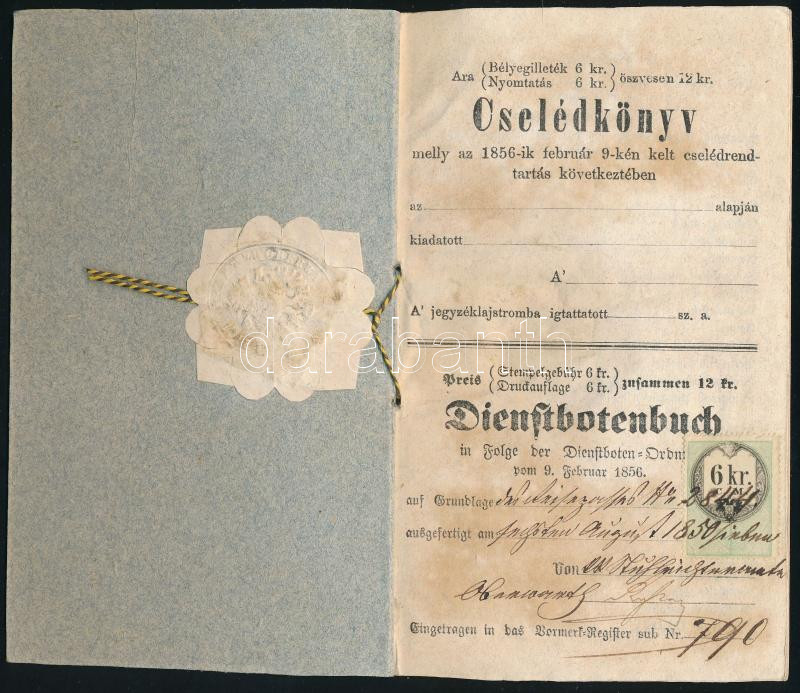 Ara (Bélyegilleték 6 kr.) öszvesen 12 kr.
(Nyomtatás 6 kr.)
Cselédkönyv
melly az 1856-ik február 9-kén kelt cselédrend-
tartás következtében
az alapján
kiadatott
A'
A' jegyzéklajstromba igtattatott sz. a.
darabanth
Preis (Stempelgebühr 6 kr.) zusammen 12 kr.
(Druckauflage 6 kr.)
Dienstbotenbuch
in Folge der Dienstboten-Ordn
vom 9. Februar 1856.
6 kr.
auf Grundlage des Reisepasses Nr.
ausgefertigt am sechsten August 1850 sieben
Von Stuhlrichteramte
Oberwarth
Eingetragen in das Vormerk-Register sub Nr. 790